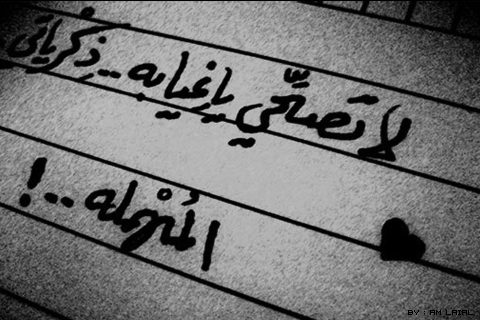 لا تَصحّي ياغيابه.. ذِكْرياتي
المُنْهمله..!
BY : AM LAIAL